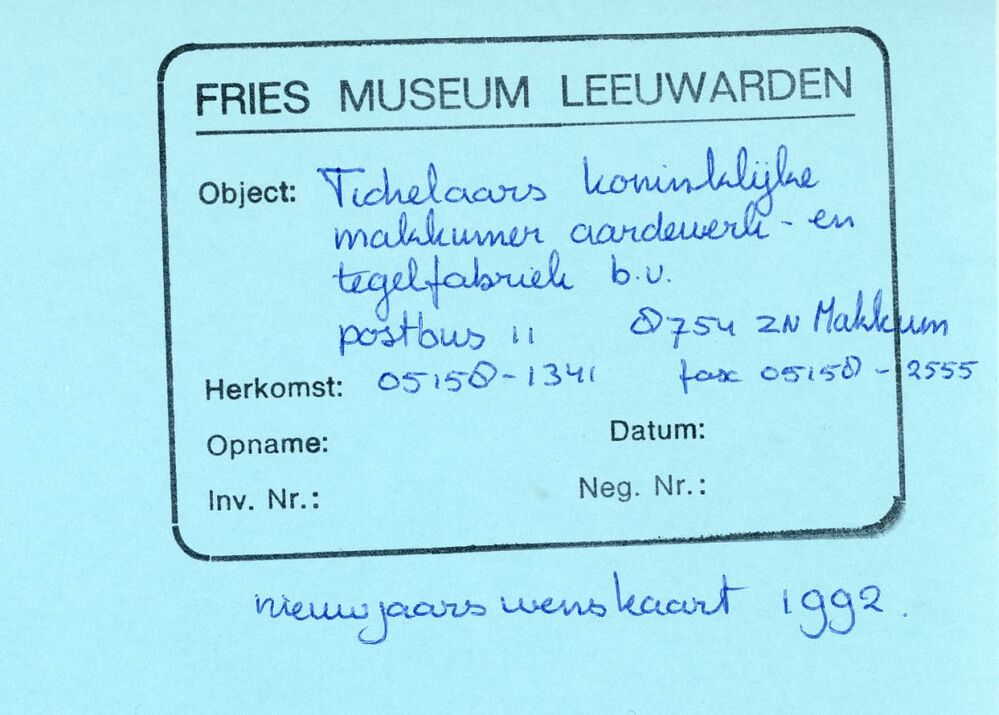 FRIES MUSEUM LEEUWARDEN
Object: Tichelaars koninklijke
makkumer aardewerk- en
tegelfabriek b.v.
postbus 11 8754 ZN Makkum
Herkomst: 05158-1341 fax 05158-2555
Opname: Datum:
Inv. Nr.: Neg. Nr.:
nieuwjaarswenskaart 1992.